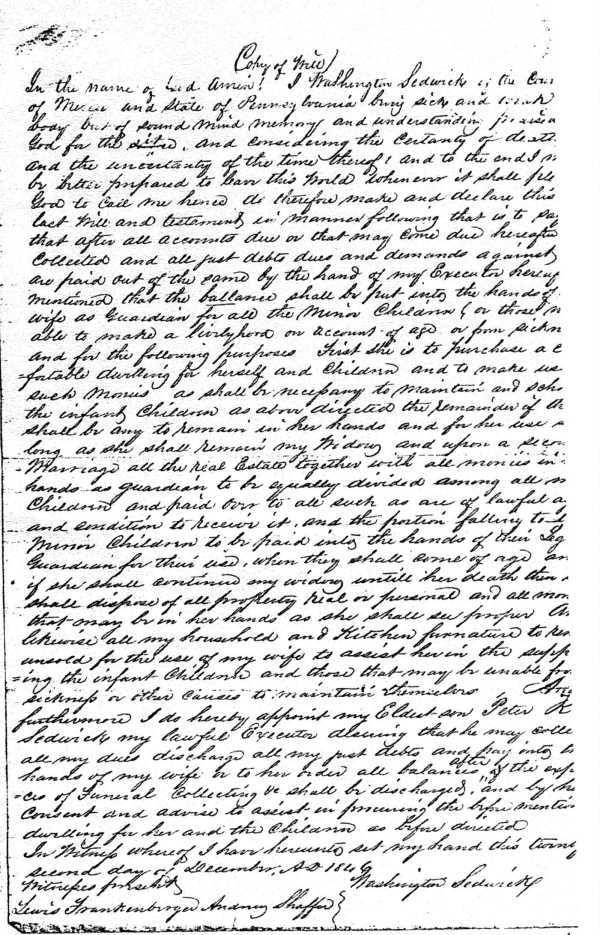 (Copy of Will)
In the name of God Amen! I Washington Sedwick of the Coun
of Mercer and State of Pennsylvania being sick and weak
body but of sound mind memory and understanding praise
God for the same, and considering the Certanty of death
and the uncertanty of the time thereof and to the end I m
be better prepared to leave this World whenever it shall ple
God to Call me hence do therefore make and declare this
last Will and testament, in manner following that is to say
that after all accounts due or that may come due hereafter
Collected and all just debts dues and demands against
are paid out of the same by the hand of my Executor hereaf
mentioned that the ballance shall be put into the hands of
wife as Guardian for all the Minor Children & or those n
able to make a livelyhood on account of age or from sickn
and for the following purposes First She is to purchase a c
=fortable dwelling for herself and Children and to make us
such Monies as shall be necessary to maintain and scho
the infant Children as above directed the remainder if th
shall be any to remain in her hands and for her use s
long as she shall remain my Widow, and upon a secon
Marriage all the real Estate together with all monies in
hands as guardian to be equally divided among all m
Children and paid over to all such as are of lawful a
and condition to receive it, and the portion falling to
Minor Children to be paid into the hands of their Leg
Guardian for their use, when they shall come of age an
if she shall continue my widow untill her death then
shall dispose of all property real or personal and all mon
that may be in her hands as she shall see proper An
likewise all my household and Kitchen furnature to rem
unsold for the use of my wife to assist her in the supp
=ing the infant Children and those that may be unable fro
sickness or other causes to maintain themselves And
furthermore I do hereby appoint my Eldest son Peter R
Sedwick my lawful Executor desiring that he may colle
all my dues discharge all my just debts and pay into th
hands of my wife or to her order all balances after the exp
=ces of Funeral Collecting &c shall be discharged, and by he
Consent and advise to assist in procuring the before mention
dwelling for her and the Children as before directed
In Witness whereof I have hereunto set my hand this twenty
second day of December, AD 1846
Witnesses present } Washington Sedwick
Lewis Frankenberger Andrew Shaffer }